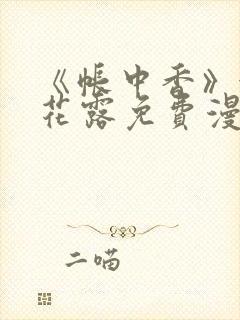 《帐中香》
花露免费漫
二喵